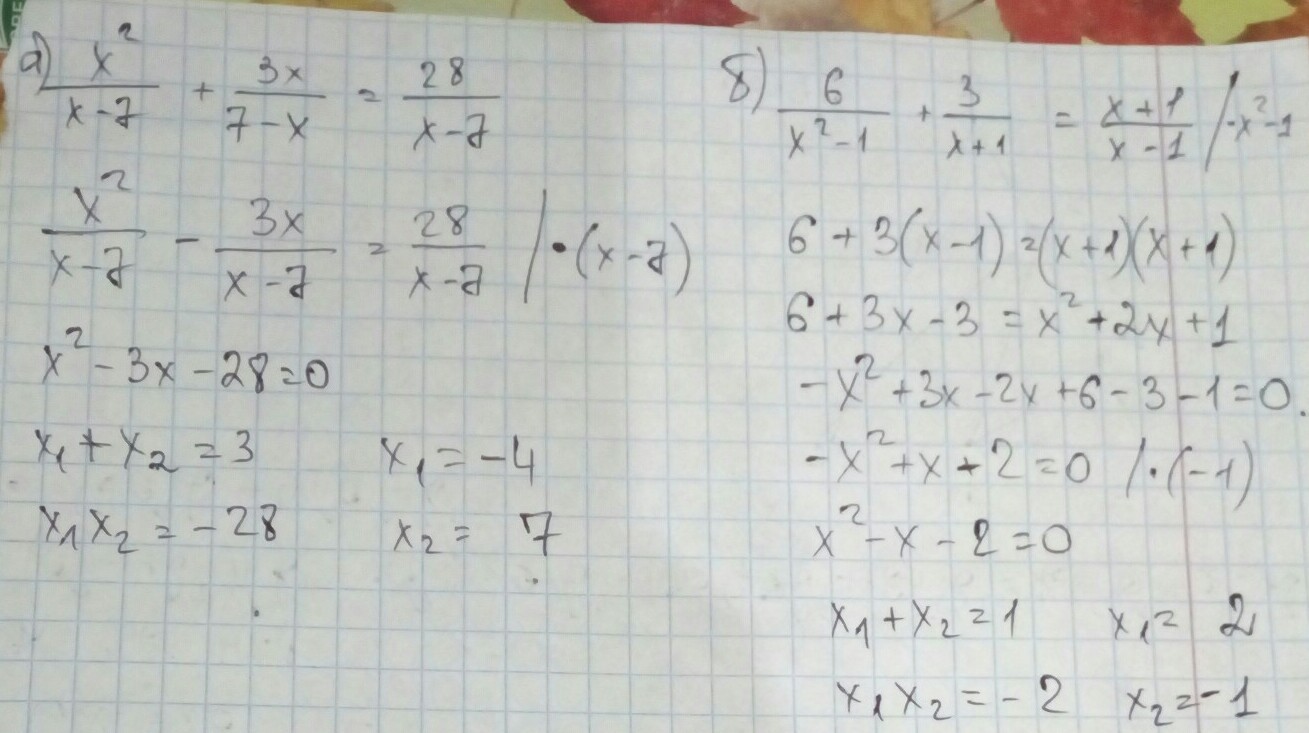 а) x²/(x-7) + 3x/(7-x) = 28/(x-7)
x²/(x-7) - 3x/(x-7) = 28/(x-7) /·(x-7)
x² - 3x - 28 = 0
x₁ + x₂ = 3 x₁ = -4
x₁ x₂ = -28 x₂ = 7
б) 6/(x²-1) + 3/(x+1) = (x+1)/(x-1) /·x²-1
6 + 3(x-1) = (x+1)(x+1)
6 + 3x - 3 = x² + 2x + 1
-x² + 3x - 2x + 6 - 3 - 1 = 0.
-x² + x + 2 = 0 /·(-1)
x² - x - 2 = 0
x₁ + x₂ = 1 x₁ = 2
x₁ x₂ = -2 x₂ = -1